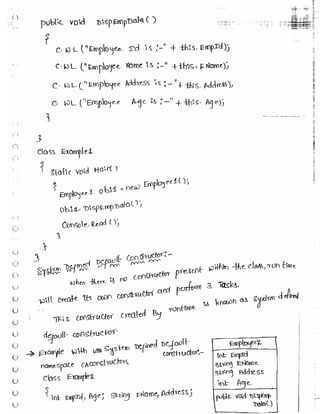 public void DispEmpData ( )
{
C. WL ("Employee Id is :-" + this. EmpId);
C. WL ("Employee Name is :-" + this. EName);
C. WL ("Employee Address is :-" + this. Address);
C. WL ("Employee Age is :-" + this. Age);
}
}
class Example1
{
static void Main( )
{
Employee1 obj1 = new Employee1( );
obj1. DispEmpData( );
Console. Read ( );
}
}
System Defined Default Constructor:-
When there is no constructor present within the class, run time
will create its own constructor and perform 3 Tasks.
This constructor created By runtime is known as System defined
default constructor.
→ Example with System Defined Default
constructor:-
namespace CAConstructors
class Example2
{
int EmpId, Age; string EName, Address;
Employee2
int EmpId
string EName
string Address
int Age
public void DispEmp
Data( )